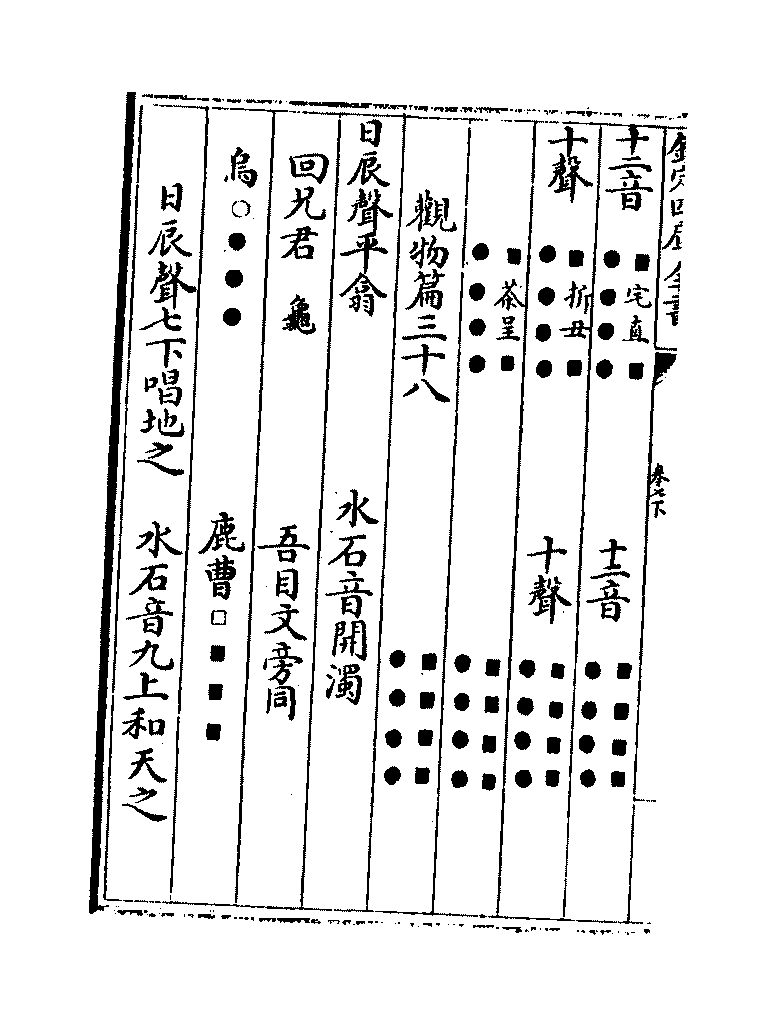 欽定四庫全書 卷七下
十二音 ■宅直■ 十二音 ■■■■
●●●● ●●●●
十聲 ■坼丑■ 十聲 ■■■■
●●●● ●●●●
■茶呈■ ■■■■
●●●● ●●●●
觀物篇三十八 ■■■■
●●●●
日辰聲平翕 水石音開濁
回兄君 龜 吾目文旁同
烏○●●● 鹿曹□■■■
日辰聲七下唱地之 水石音九上和天之